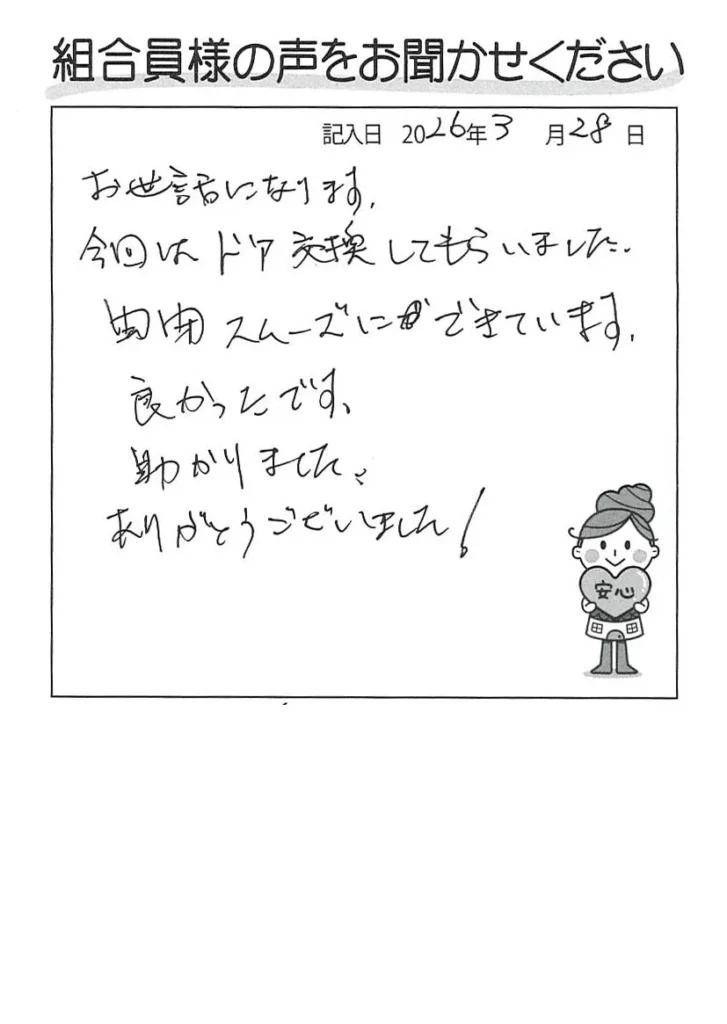 組合員様の声をお聞かせください
記入日 2026年3月28日
お世話になります。
今回はドア交換してもらいました。
スムーズにができています。
良かったです。
助かりました。
ありがとうございました!
安心